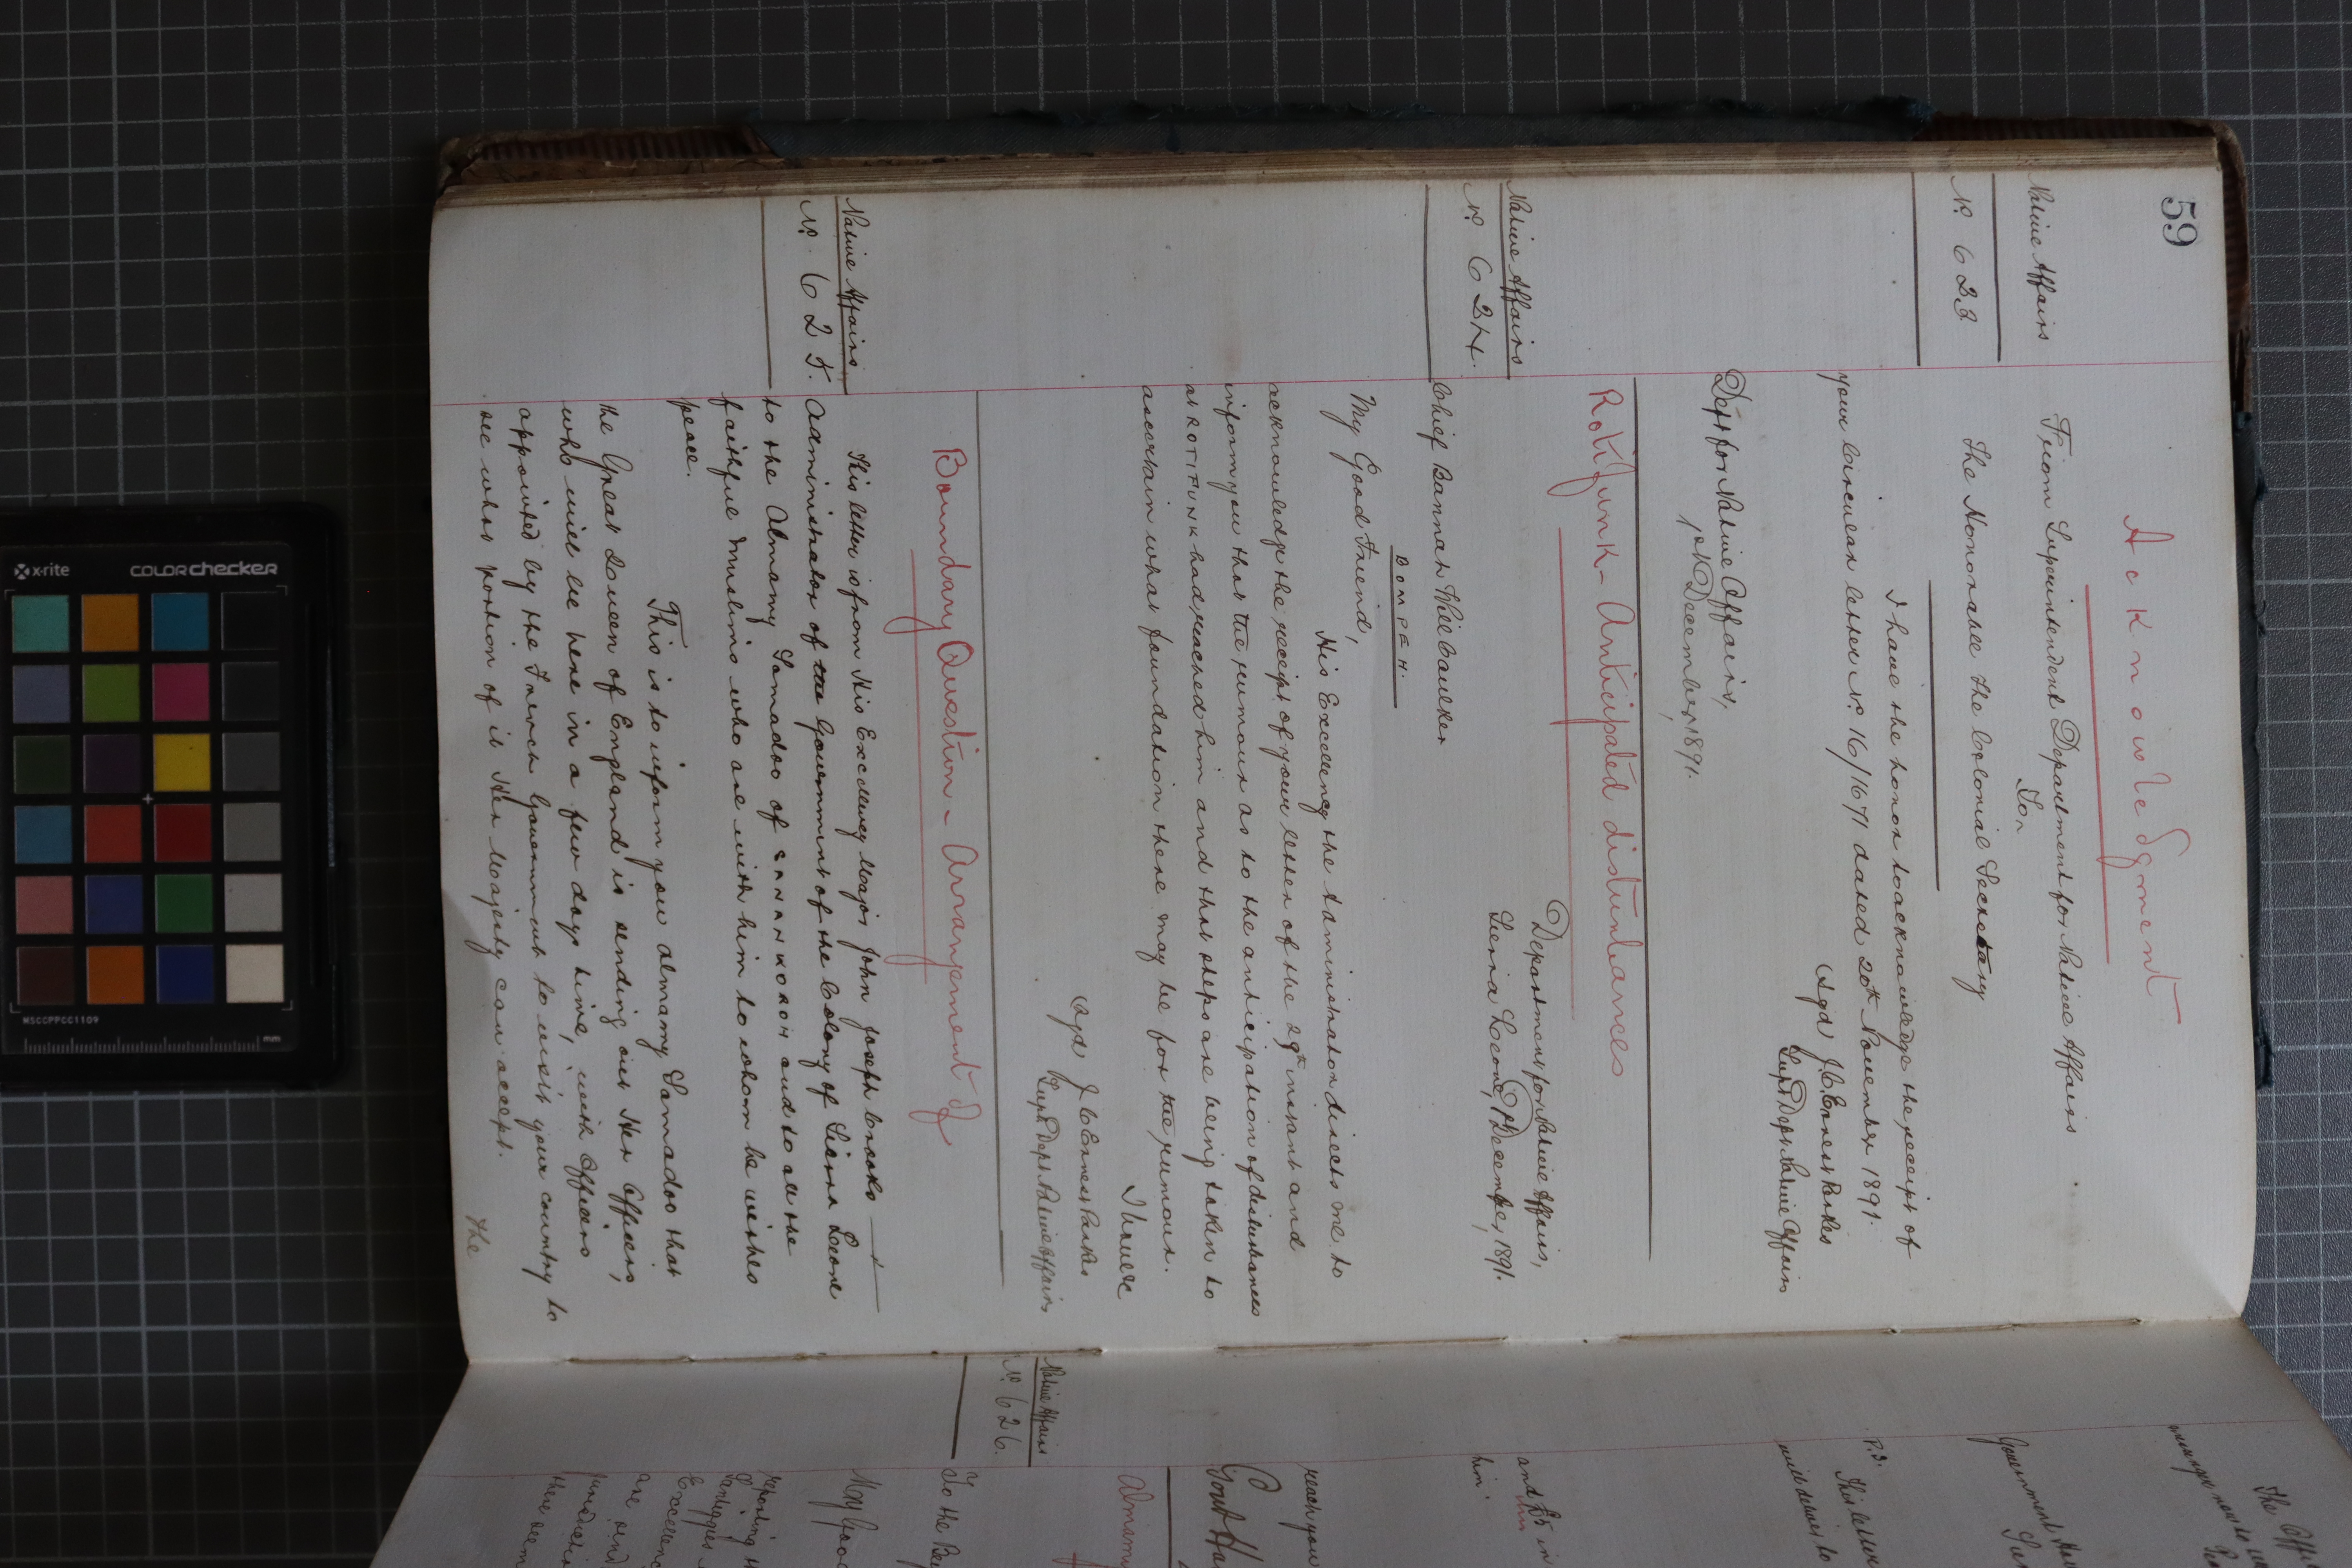 59
Acknowledgment
Native Affairs
From Superintendent Department for Native Affairs
To
No. 623
The Honorable the Colonial Secretary
I have the honor to acknowledge the receipt of
your Circular letter No. 16/1671 dated 20th November 1891.
(Sgd J. C. Ernest Parkes
Supt Dept Native Affairs
Dept for Native Affairs,
1st December, 1891.
Rotifunk - Anticipated disturbances
Native Affairs
No. 624.
Department for Native Affairs,
Sierra Leone, 1st December, 1891.
Chief Bannah Will Caulker
BOMPEH.
My Good Friend,
His Excellency the Administrator directs me to
acknowledge the receipt of your letter of the 29th instant and
inform you that the rumour as to the anticipation of disturbances
at ROTIFUNK had reached him and that steps are being taken to
ascertain what foundation there may be for the rumour.
I have &c
(Sgd J C Ernest Parkes
Supt Dept Native Affairs
Boundary Question - Arrangement of
Native Affairs
No. 625.
This letter is from His Excellency Major John Joseph Crooks
Administrator of the Government of the Colony of Sierra Leone
to the Almamy Samadoo of SANNKOROH and to all the
faithful Muslims who are with him to whom he wishes
peace.
This is to inform you Almamy Samadoo that
the Great Queen of England is sending out Her Officers,
who will be here in a few days time, with Officers
appointed by the French Government to visit your country to
see what portion of it Her Majesty can accept.
The
The
messenger now to
Government
P.S. This letter
will deliver to
and £5 in
him.
reach you
Govt
Almamy
Native Affairs
No. 626.
To the
My Good
reporting
are
there seem